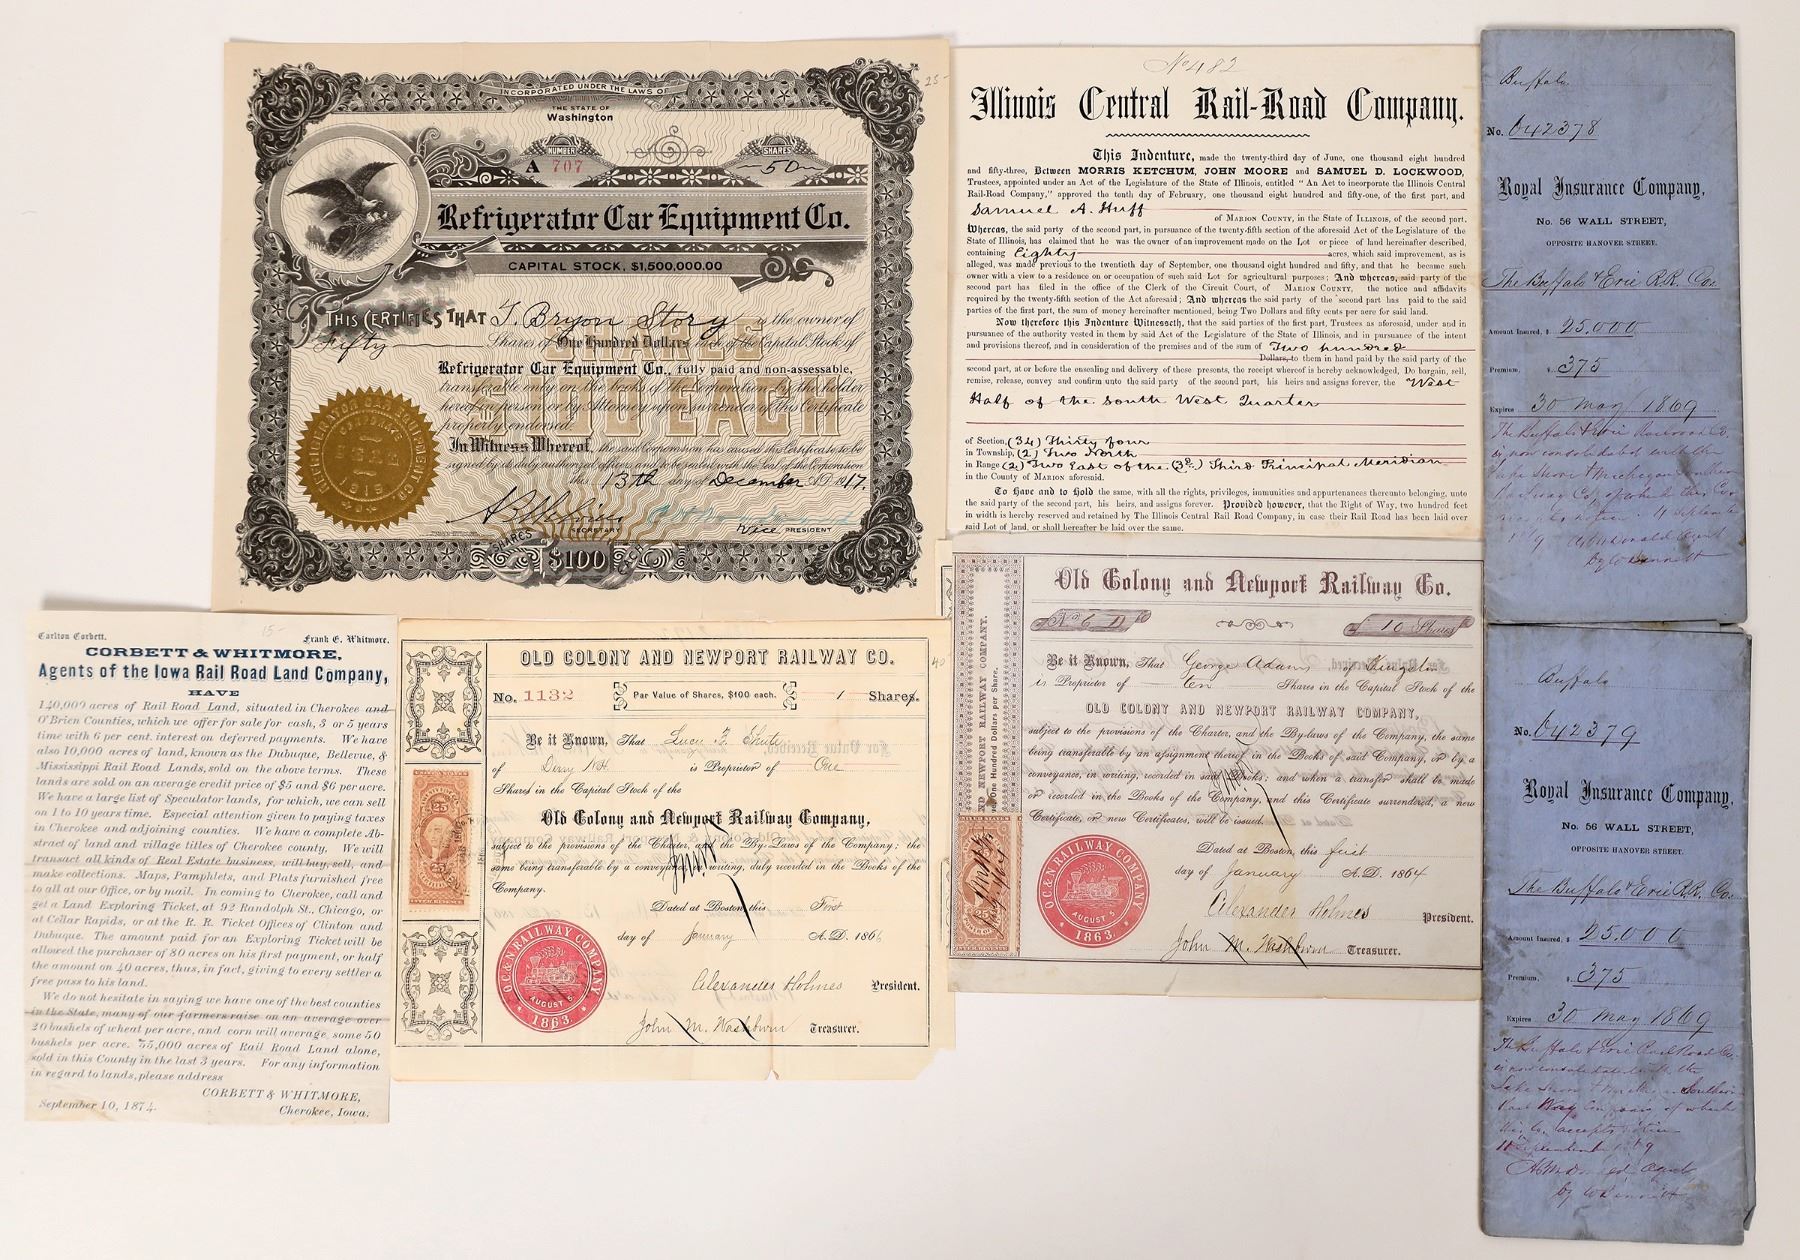 INCORPORATED UNDER THE LAWS OF
THE STATE OF
Washington
NUMBER
A 707
SHARES
50
Refrigerator Car Equipment Co.
CAPITAL STOCK, $1,500,000.00
THIS CERTIFIES THAT T. Bryon Story is the owner of
Fifty Shares of One Hundred Dollars each of the Capital Stock of
Refrigerator Car Equipment Co., fully paid and non-assessable,
transferable only on the books of the Corporation by the holder
hereof in person or by Attorney upon surrender of this Certificate
properly endorsed.
SHARES
$100 EACH
In Witness Whereof, the said Corporation has caused this Certificate to be
signed by its duly authorized officers and to be sealed with the Seal of the Corporation
this 13th day of December A.D. 1917.
SECRETARY
Vice PRESIDENT
REFRIGERATOR CAR EQUIPMENT CO.
CORPORATE
SEAL
SHARES
$100
25-
No 482
Illinois Central Rail-Road Company.
This Indenture, made the twenty-third day of June, one thousand eight hundred
and fifty-three, Between MORRIS KETCHUM, JOHN MOORE and SAMUEL D. LOCKWOOD,
Trustees, appointed under an Act of the Legislature of the State of Illinois, entitled "An Act to incorporate the Illinois Central
Rail-Road Company," approved the tenth day of February, one thousand eight hundred and fifty-one, of the first part, and
Samuel A. Huff
of MARION COUNTY, in the State of ILLINOIS, of the second part.
Whereas, the said party of the second part, in pursuance of the twenty-fifth section of the aforesaid Act of the Legislature of the
State of Illinois, has claimed that he was the owner of an improvement made on the Lot or piece of land hereinafter described,
containing Eighty acres, which said improvement, as is
alleged, was made previous to the twentieth day of September, one thousand eight hundred and fifty, and that he became such
owner with a view to a residence on or occupation of such said Lot for agricultural purposes; And whereas, said party of the
second part has filed in the office of the Clerk of the Circuit Court, of MARION COUNTY, the notice and affidavits
required by the twenty-fifth section of the Act aforesaid; And whereas the said party of the second part has paid to the said
parties of the first part, the sum of money hereinafter mentioned, being Two Dollars and fifty cents per acre for said land.
Now therefore this Indenture Witnesseth, that the said parties of the first part, Trustees as aforesaid, under and in
pursuance of the authority vested in them by said Act of the Legislature of the State of Illinois, and in pursuance of the intent
and provisions thereof, and in consideration of the premises and of the sum of Two hundred
Dollars, to them in hand paid by the said party of the
second part, at or before the ensealing and delivery of these presents, the receipt whereof is hereby acknowledged, Do bargain, sell,
remise, release, convey and confirm unto the said party of the second part, his heirs and assigns forever, the West
Half of the South West Quarter
of Section, (34) Thirty four
in Township, (2) Two North
in Range (2) Two East of the (3d) Third Principal Meridian
in the County of MARION aforesaid.
To have and to hold the same, with all the rights, privileges, immunities and appurtenances thereunto belonging, unto
the said party of the second part, his heirs, and assigns forever. Provided however, that the Right of Way, two hundred feet
in width is hereby reserved and retained by The Illinois Central Rail Road Company, in case their Rail Road has been laid over
said Lot of land, or shall hereafter be laid over the same.
Buffalo
No. 642378
Royal Insurance Company,
No. 56 WALL STREET,
OPPOSITE HANOVER STREET.
The Buffalo & Erie R.R. Co.
Amount Insured, $ 25.000
Premium, $ 375
Expires 30 May 1869
The Buffalo & Erie Railroad Co.
is now consolidated with the
Lake Shore & Michigan Southern
Railway Co.
Carlton Corbett. Frank E. Whitmore.
15-
CORBETT & WHITMORE,
Agents of the Iowa Rail Road Land Company,
HAVE
140,000 acres of Rail Road Land, situated in Cherokee and
O'Brien Counties, which we offer for sale for cash, 3 or 5 years
time with 6 per cent. interest on deferred payments. We have
also 10,000 acres of land, known as the Dubuque, Bellevue, &
Mississippi Rail Road Lands, sold on the above terms. These
lands are sold on an average credit price of $5 and $6 per acre.
We have a large list of Speculator lands, for which, we can sell
on 1 to 10 years time. Especial attention given to paying taxes
in Cherokee and adjoining counties. We have a complete Ab-
stract of land and village titles of Cherokee county. We will
transact all kinds of Real Estate business, will buy, sell, and
make collections. Maps, Pamphlets, and Plats furnished free
to all at our Office, or by mail. In coming to Cherokee, call and
get a Land Exploring Ticket, at 92 Randolph St., Chicago, or
at Cedar Rapids, or at the R. R. Ticket Offices of Clinton and
Dubuque. The amount paid for an Exploring Ticket will be
allowed the purchaser of 80 acres on his first payment, or half
the amount on 40 acres, thus, in fact, giving to every settler a
free pass to his land.
We do not hesitate in saying we have one of the best counties
in the State, many of our farmers raise on an average over
20 bushels of wheat per acre, and corn will average, some 50
bushels per acre. 55,000 acres of Rail Road Land alone,
sold in this County in the last 3 years. For any information
in regard to lands, please address
CORBETT & WHITMORE,
Cherokee, Iowa.
September 10, 1874.
OLD COLONY AND NEWPORT RAILWAY CO.
40
No. 1132 Par Value of Shares, $100 each. 1 Shares.
Be it Known, That Lucy F. Shute
of Derry N.H. is Proprietor of One
Shares in the Capital Stock of the
Old Colony and Newport Railway Company,
subject to the provisions of the Charter, and the By-Laws of the Company; the
same being transferable by a conveyance, in writing, duly recorded in the Books of the
Company.
Dated at Boston, this First
day of January A.D. 1866
Alexander Holmes President.
John M. Washburn Treasurer.
25
O.C. & N. RAILWAY COMPANY.
AUGUST 5
1863.
Old Colony and Newport Railway Co.
No 611 10 Shares
Be it Known, That George Adams of Kingston
is Proprietor of ten Shares in the Capital Stock of the
OLD COLONY AND NEWPORT RAILWAY COMPANY,
subject to the provisions of the Charter, and the By-laws of the Company, the
same being transferable by an assignment thereof in the Books of said Company, or by a
conveyance, in writing, recorded in said Books; and when a transfer shall be made
or recorded in the Books of the Company, and this Certificate surrendered, a new
Certificate, or new Certificates, will be issued.
Dated at Boston, this first
day of January A.D. 1864
Alexander Holmes President.
John M. Washburn Treasurer.
ND NEWPORT RAILWAY COMPANY.
One Hundred Dollars per Share.
O.C. & N. RAILWAY COMPANY
AUGUST 5
1863.
Buffalo
No. 642379
Royal Insurance Company,
No. 56 WALL STREET,
OPPOSITE HANOVER STREET.
The Buffalo & Erie R.R. Co.
Amount Insured, $ 25.000
Premium, $ 375
Expires 30 May 1869
The Buffalo & Erie Rail Road Co.
is now consolidated with the
Lake Shore & Michigan Southern
Rail Way Company of which
this Co. accepts notice
11 September 1869